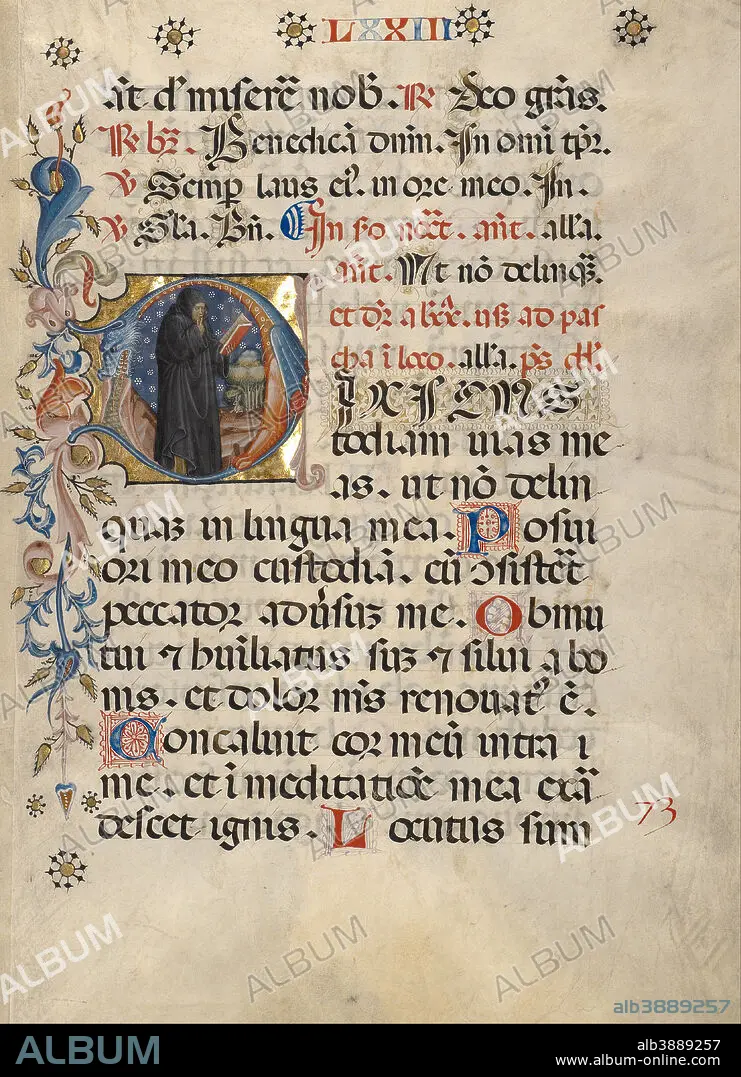 LXXIII
at d' miserē nob. R Deo grās.
R bz. Benedicā dnm. In omi tpr.
V Semp laus ei'. in ore meo. In.
V Gla. Bn. In so noct. ant. alla.
ant. Ut nō delinq.
et dr a lxx. usz ad pas
cha i loco. alla. ps dd.
IXI CUS
todiam uias me
as. ut nō delin
quaz in lingua mea. Posui
ori meo custodiā. cū ɔsistet
peccator aduersuz me. Obmu
tui ⁊ humiliatus suz ⁊ silui a bo
nis. et dolor mis renouat' ē.
Concaluit cor meū intra i
me. et i meditatiōe mea exā
descet ignis. Locutus sum
73
ALBUM
alb3889257
ALBUM
alb3889257
www.album-online.com